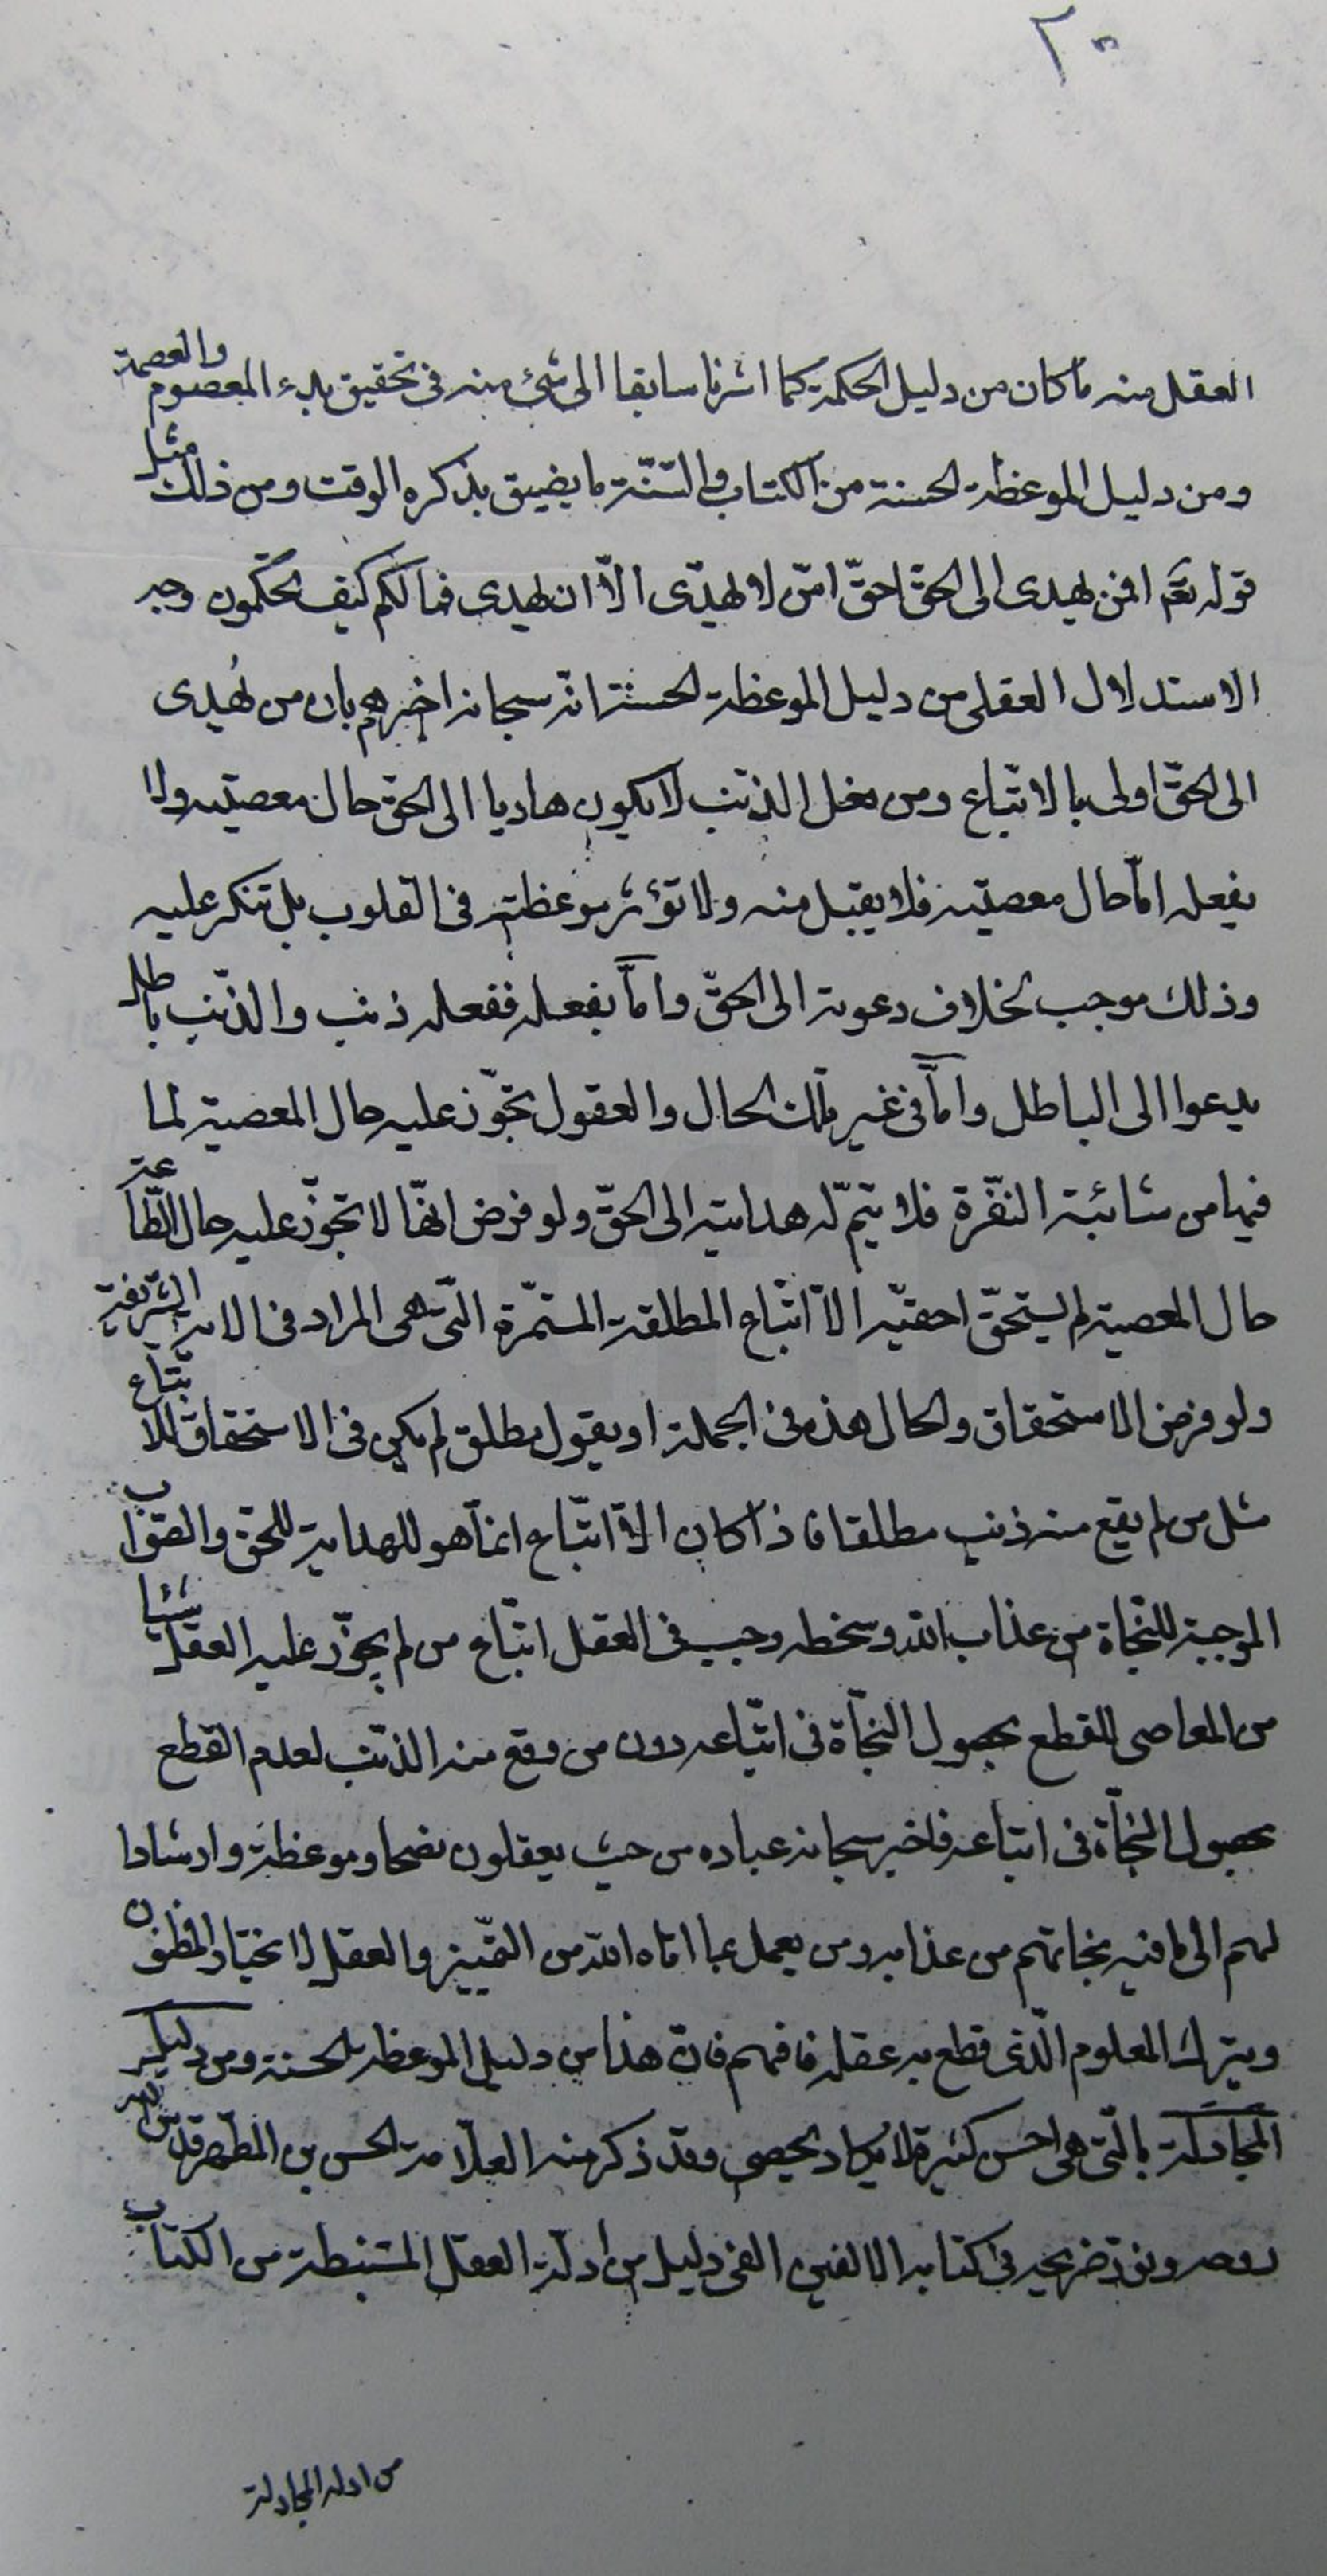 ٢٠
العقل منه ما كان من دليل الحكمة كما اشرنا سابقا الى شئ منه فى تحقيق بدء المعصوم والعصمة
ومن دليل الموعظة الحسنة من الكتاب والسّنّة ما يضيق بذكره الوقت ومن ذلك مثل
قوله تعَم افمن يهدى الى الحقّ احقّ امّن لا يهدّى الاّ ان يهدى فما لكم كيف تحكمون وجه
الاستدلال العقلى من دليل الموعظة الحسنة انّه سبحانه اخبرهم بان من يُهدى
الى الحقّ اولى بالاتّباع ومن فعل الذنب لا يكون هاديا الى الحقّ حال معصيته ولا
بفعله امّا حال معصيته فلا يقبل منه ولا تؤثر موعظته فى القلوب بل تنكر عليه
وذلك موجب لخلاف دعوته الى الحقّ وامّا بفعله ففعله ذنب والذّنب باطل
يدعوا الى الباطل وامّا فى غير تلك الحال والعقول تجوّز عليه حال المعصية لما
فيها من شائبة النفرة فلا يتمّ له هدايته الى الحقّ ولو فرض انّها لا تجوّز عليه حال الطّاعة
حال المعصية لم يستحقّ احقيّه الاّ اتّباع المطلقة المستمّرة الّتى هى المراد فى الاية الشريفة
ولو فرض الاستحقاق والحال هذه فى الجملة او بقول مطلق لم يكن فى الاستحقاق للاتّباع
مثل من لم يقع منه ذنب مطلقا فاذا كان الاتّباع انّما هو للهداية للحق والصّواب
الموجبة للنّجاة من عذاب الله وسخطه وجب فى العقل اتّباع من لم يجوّز عليه العقل شيئا
من المعاصى للقطع بحصول النّجاة فى اتّباعه دون من وقع منه الذّنب لعدم القطع
بحصول النّجاة فى اتباعه فاخبر سبحانه عباده من حيث يعقلون نصحا وموعظة وارشادا
لهم الى ما فيه نجاتهم من عذابه ومن يعمل بما اتاه الله من التّمييز والعقل لا يختار المظنون
ويترك المعلوم الّذى قطع به عقله فافهم فانّ هذا من دليل الموعظة الحسنة ومن دليل
المجادلة بالّتى هى احسن كثيرة لا يكاد يحصى وقد ذكر منه العلاّمة الحسن بن المطّهر قدّس الله
روحه ونوّر ضريحه فى كتابه الالفين الفى دليل من ادلّة العقل المستنبطة من الكتاب
من ادلة المجادلة